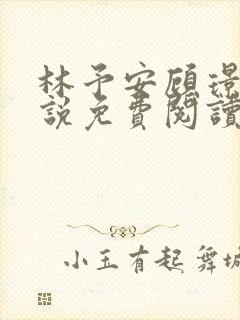 林予安顧璟
說免費閱讀
小玉有起舞城